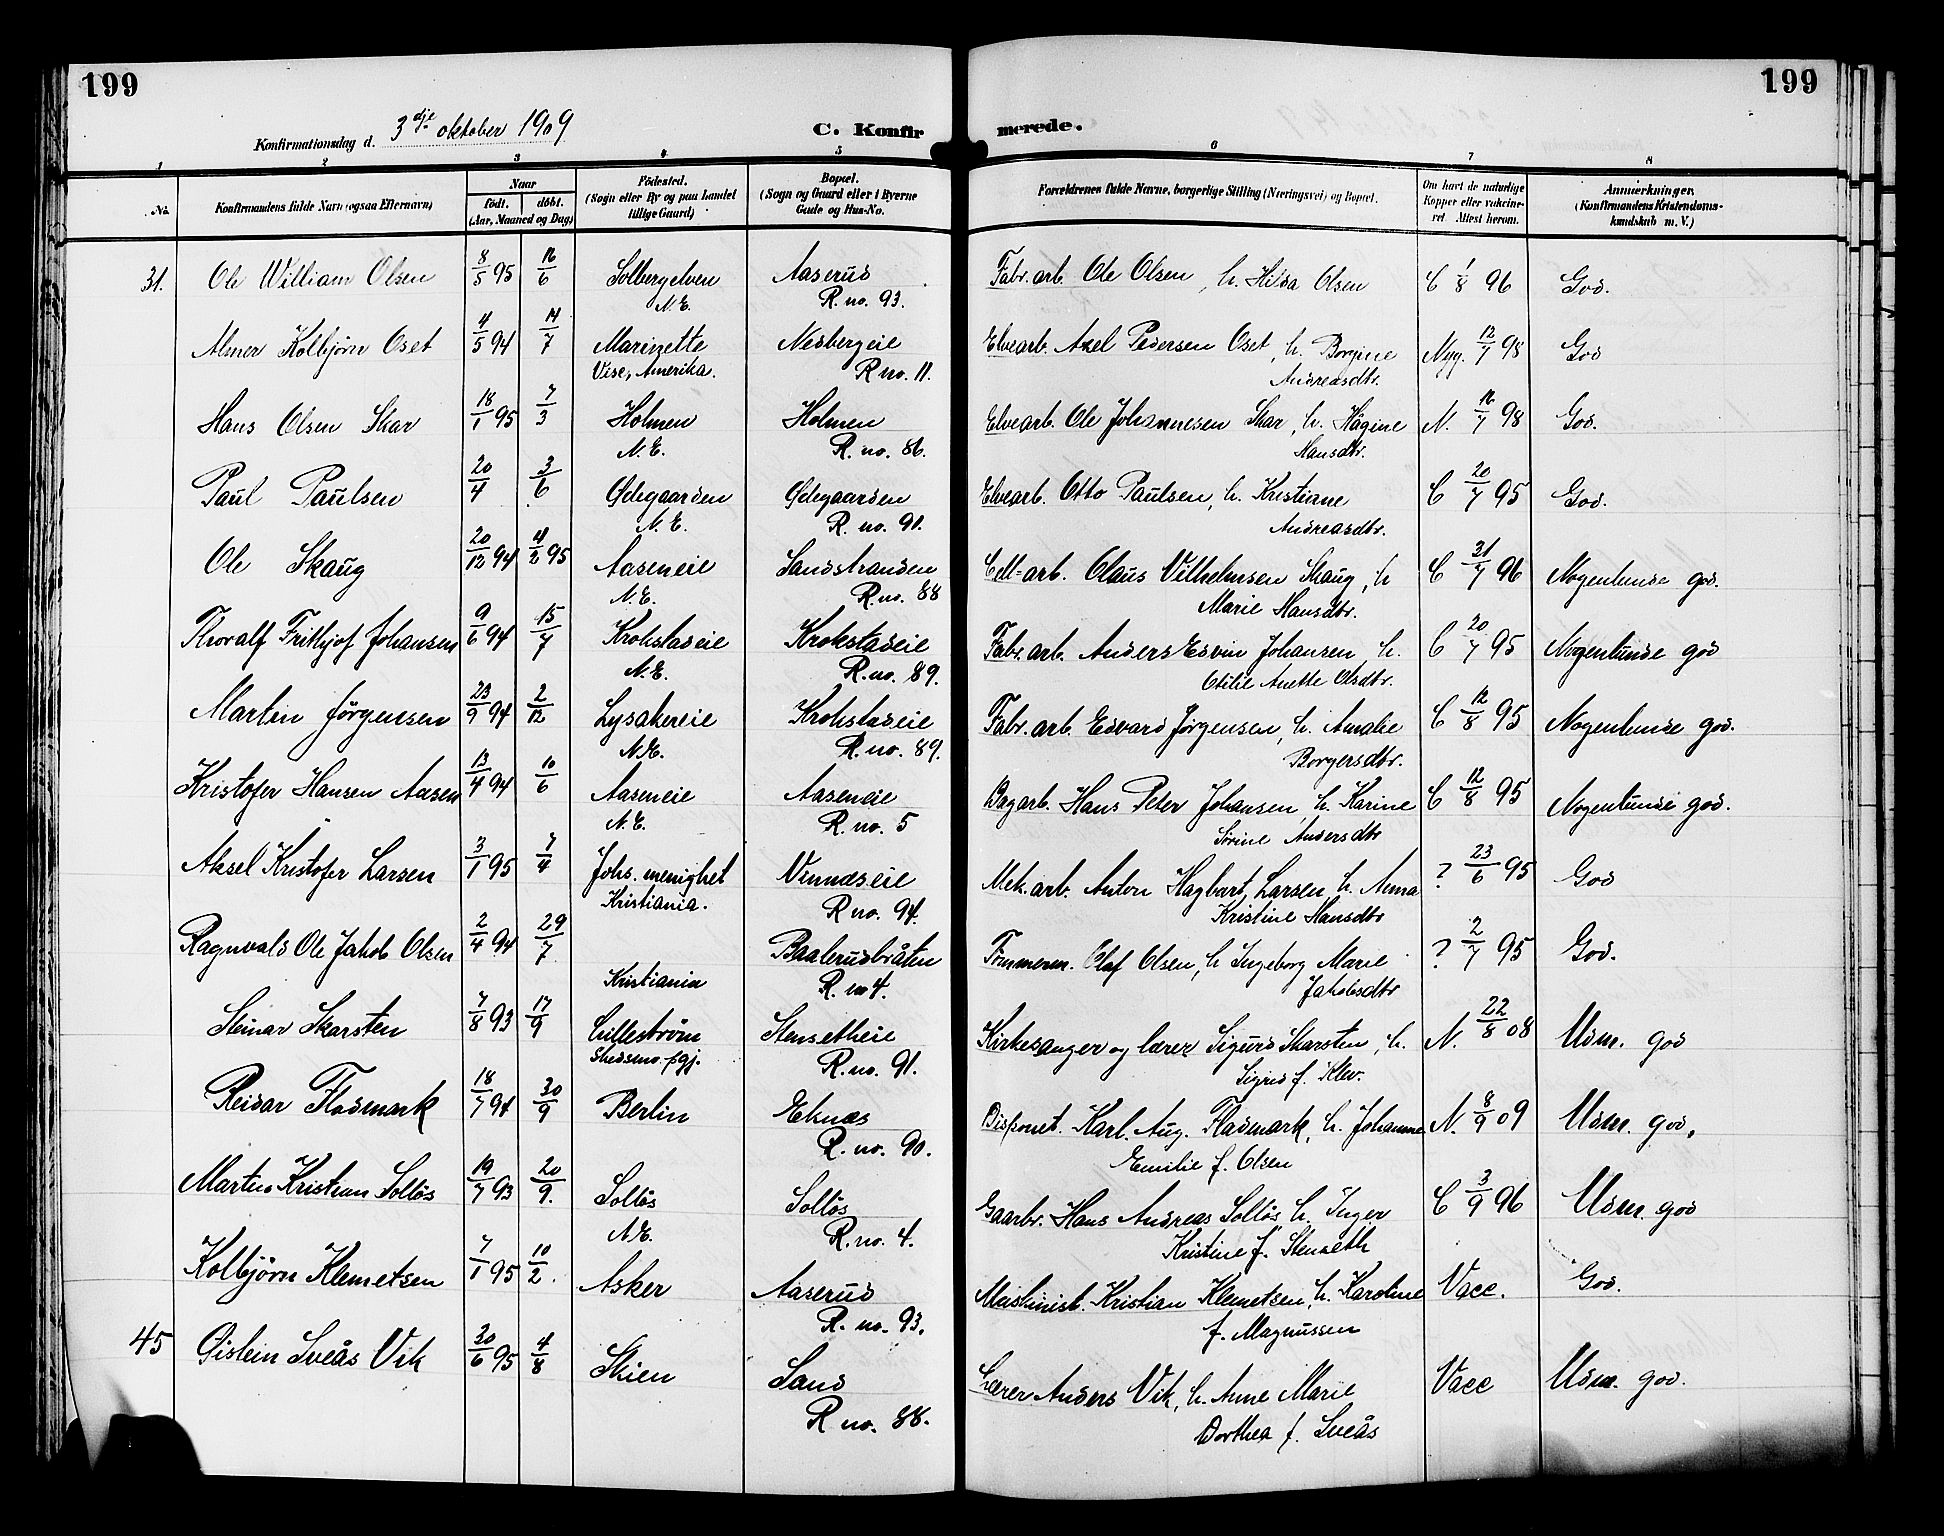 199
199
Konfirmationsdag d. 3dje oktober 1909
C. Konfirmerede.
1 2 3 4 5 6 7 8
No.
Konfirmandens fulde Navn (ogsaa Efternavn)
Naar
født. døbt.
(Aar, Maaned og Dag)
Fødested.
(Sogn eller By og paa Landet
tillige Gaard)
Bopæl.
(Sogn og Gaard eller i Byerne
Gade og Hus-No.
Forældrenes fulde Navne, borgerlige Stilling (Næringsvei) og Bopæl.
Om havt de naturlige
Kopper eller vakcine-
ret Attest herom.
Anmærkninger.
(Konfirmandens Kristendoms-
kundskab m. V.)
31. Ole William Olsen 8/5 95 16/6 Solbergelven Aaserud Fabr. arb. Ole Olsen, h. Hilda Olsen C 1/8 96 God.
N.E. R. no. 93.
Almer Kolbjørn Oset 4/5 94 14/7 Marinette Nedbergeie Elvearb. Axel Pedersen Oset, h. Borgine Nyg. 12/7 98 God
Visc, Amerika. R no. 11. Andreasdtr.
Hans Olsen Skar 18/1 95 7/3 Holmen Holmen Elvearb. Ole Johannesen Skar, h. Hågine N. 16/7 98 God.
N.E. R. no. 86. Hansdtr.
Paul Paulsen 20/4 3/6 Ødegaarden Ødegaarden Elvearb. Otto Paulsen, h. Kristiane C 20/7 95 God.
N.E. R. no. 91. Andreasdtr.
Ole Skaug 20/12 94 4/2 95 Aaseneie Sandstranden Cell-arb. Claus Vilhelmsen Skaug, h C 31/7 96 Nogenlunde god.
N.E. R. no. 88 Marie Hansdtr.
Thoralf Frithjof Johansen 9/6 94 15/7 Krokstadeie Krokstadeie Fabr. arb. Anders Edvin Johansen, h. C 20/7 95 Nogenlunde god
N.E. R. no. 89. Otilie Anette Olsdtr.
Martin Jørgensen 23/9 94 2/12 Lysakereie Krokstadeie Fabr. arb. Edvard Jørgensen, h. Amalie C 12/8 95 Nogenlunde god.
N.E. R. no. 89. Borgersdtr.
Kristofer Hansen Aasen 13/4 94 10/6 Aaseneie Aaseneie Dagarb. Hans Peter Johansen, h. Karine C 12/8 95 Nogenlunde god.
N.E. R. no. 5 Sørine Andersdtr
Aksel Kristofer Larsen 3/1 95 7/4 Johs. menighet Vinnæseie Mek. arb. Anton Hagbart Larsen, h. Anna ? 23/6 95 God
Kristiania. R no. 94. Kristine Hansdtr
Ragnvald Ole Jakob Olsen 2/4 94 29/7 Baalerudbråten Tømmerm. Olaf Olsen, h Ingeborg Marie ? 2/7 95 God.
Kristiania R. no 4. Jakobsdtr
Steinar Skarsten 7/8 93 17/9 Lilleström Stensetheie Kirkesanger og lærer Sigurd Skarsten, h. N. 22/8 08 Udm. god
Skedsmo pgj. R. no. 91. Sigrid f. Klev.
Reidar Flodmark 18/7 94 30/9 Berlin Eknæs Disponet. Karl. Aug. Fladmark, h. Johanne N. 8/9 09 Udm. god.
R. no. 90. Emilie f. Olsen
Martin Kristian Solløs 19/7 93 20/9. Solløs Solløs Gaarbr. Hans Andreas Solløs, h. Inger C 3/9 96 Udm. god
N.E. R. no. 4. Kristine f. Stenseth
Kolbjørn Klemetsen 7/1 95 10/2. Asker Aaserud Maskinist. Kristian Klemetsen, h. Karoline Vacc. God.
R. no. 93. f. Magnussen
45 Øistein Sveås Vik 30/6 95 4/8 Skien Sand Lærer Anders Vik, h. Anne Marie Vacc Udm. god.
R no. 88. Dorthea f. Sveås